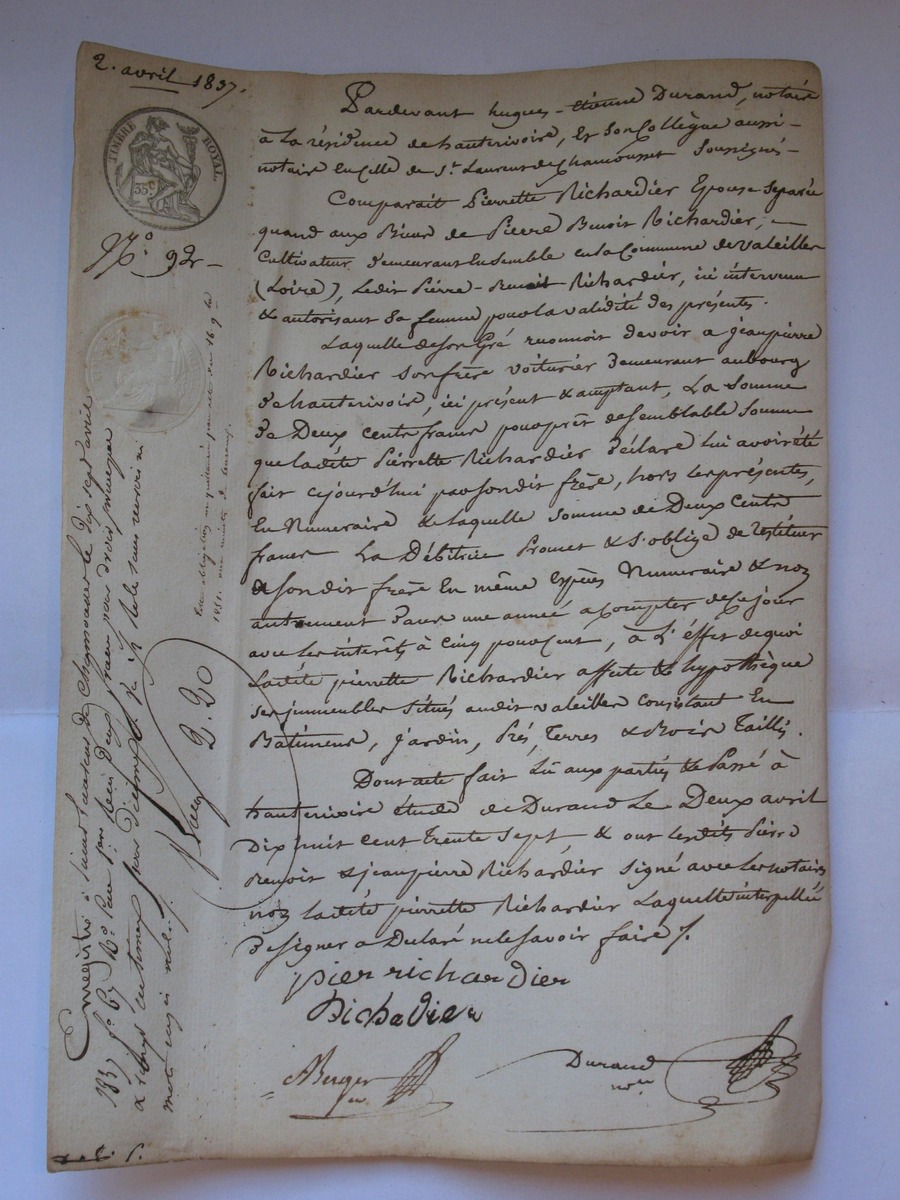 2. avril 1837.
TIMBRE ROYAL
35 c
N.o 92
Pardevant hugues - etienne Durand, notaire
à la résidence de hauterivoire, Et son Collègue aussi -
notaire En celle de St. Laurent de Chamousset Soussignés -
Comparait Pierrette Richardier Epouse Séparée
quand aux Biens de Pierre Benoit Richardier, -
Cultivateur demeurant Ensemble en la Commune de valeilles
(Loire), Ledit Pierre - Benoit Richardier, ici intervenu
& autorisant Sa femme pour la validité des présentes.
Laquelle de son Gré reconnoit devoir a jeanpierre
Richardier son frère voiturier demeurant au bourg
de hauterivoire, ici présent & acceptant, La Somme
de Deux cents francs pour prêt de semblable somme
que ladite Pierrette Richardier déclare lui avoir été
fait cejourd'hui par sondit frère, hors les présentes,
En Numeraire & laquelle somme de Deux Cents
francs La Débitrice Promet & s'oblige de restituer
à sondit frère En même Espèces Numeraire & non
autrement dans une année a compter de ce jour
avec les interêts à cinq pour cent, à L'effet de quoi
Laditte pierrette Richardier affecte & hypothèque
ses immeubles Situés audit valeilles consistant En
Batimens, jardin, Prés, Terres & Bois Taillis.
Dont acte fait Lu aux parties & Passé à
hauterivoire étude de Durand Le Deux avril
Dix huit cent trente Sept & ont lesdits Pierre
Benoit & jeanpierre Richardier signé avec les notaires
non Laditte pierrette Richardier Laquelle interpellée
de signer a Déclaré ne le savoir faire /.
pier richardier
Richadier
Berger
Durand
nore
Enregistré à Saint Laurent de Chamousset le dix sept avril
1837 fo. 67 Ro. Reçu un franc pour droit principal
& dix centimes pour décime
Reçu 2. 20